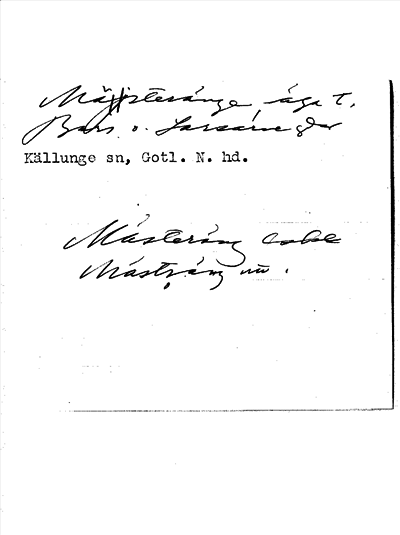 Mästeränge, äga t.
Bars o. Larsarve gdr
Källunge sn, Gotl. N. hd.
Másteráng
Mástráng